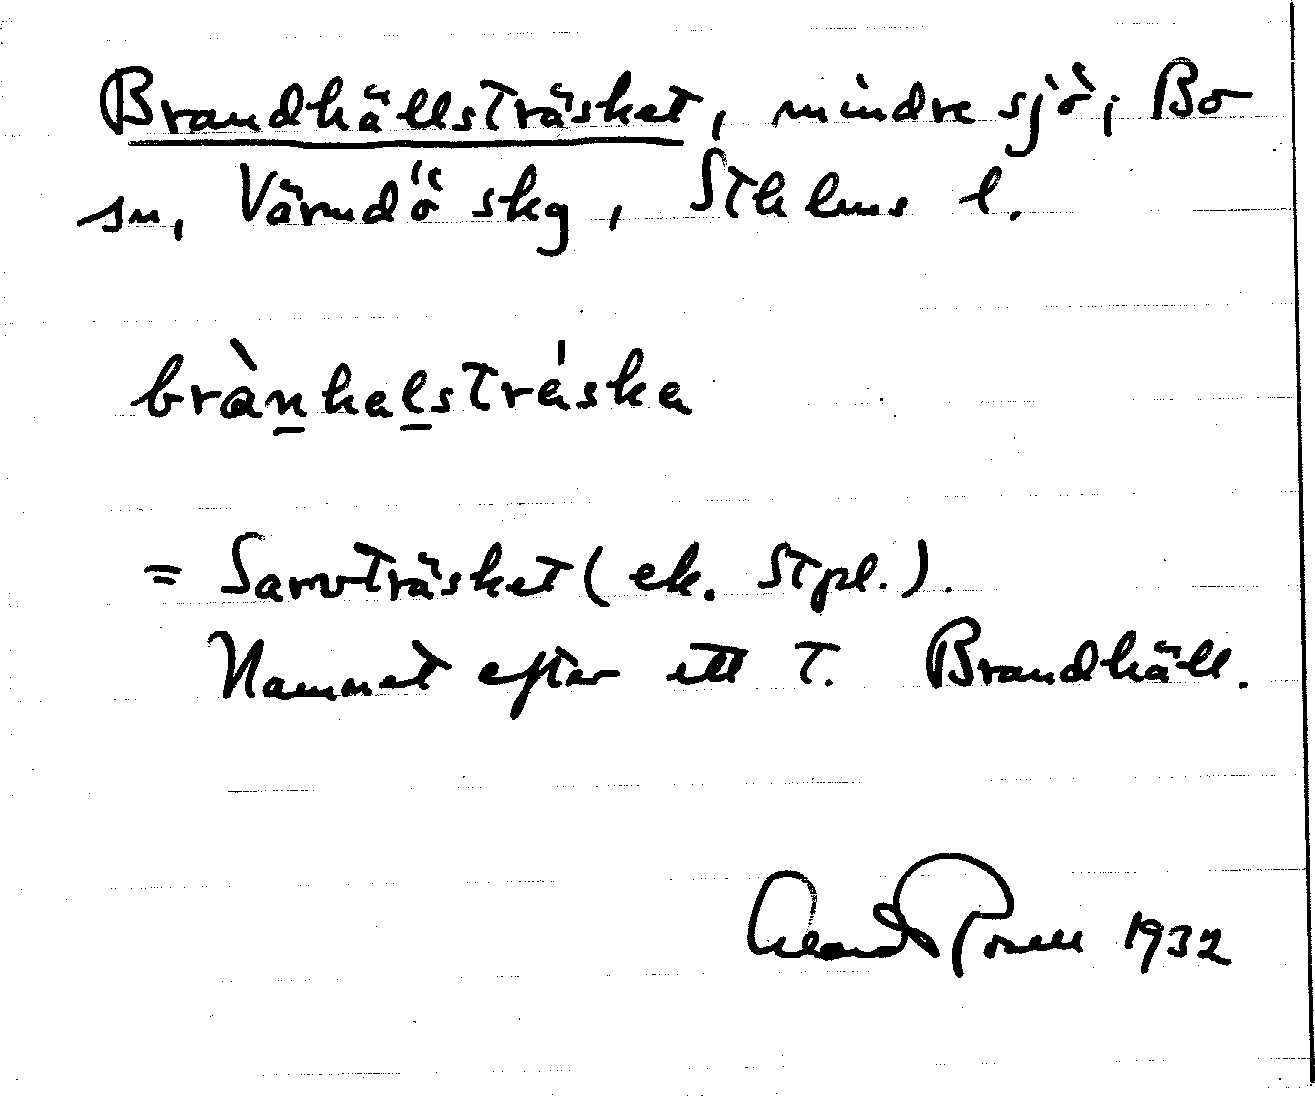 Brandhällsträsket, mindre sjö, Bo
sn, Värmdö skg, Sthlms l.
brànhalsträ́ska
= Sarvträsket (ek. stpl.).
Namnet efter ett t. Brandhäll.
1932